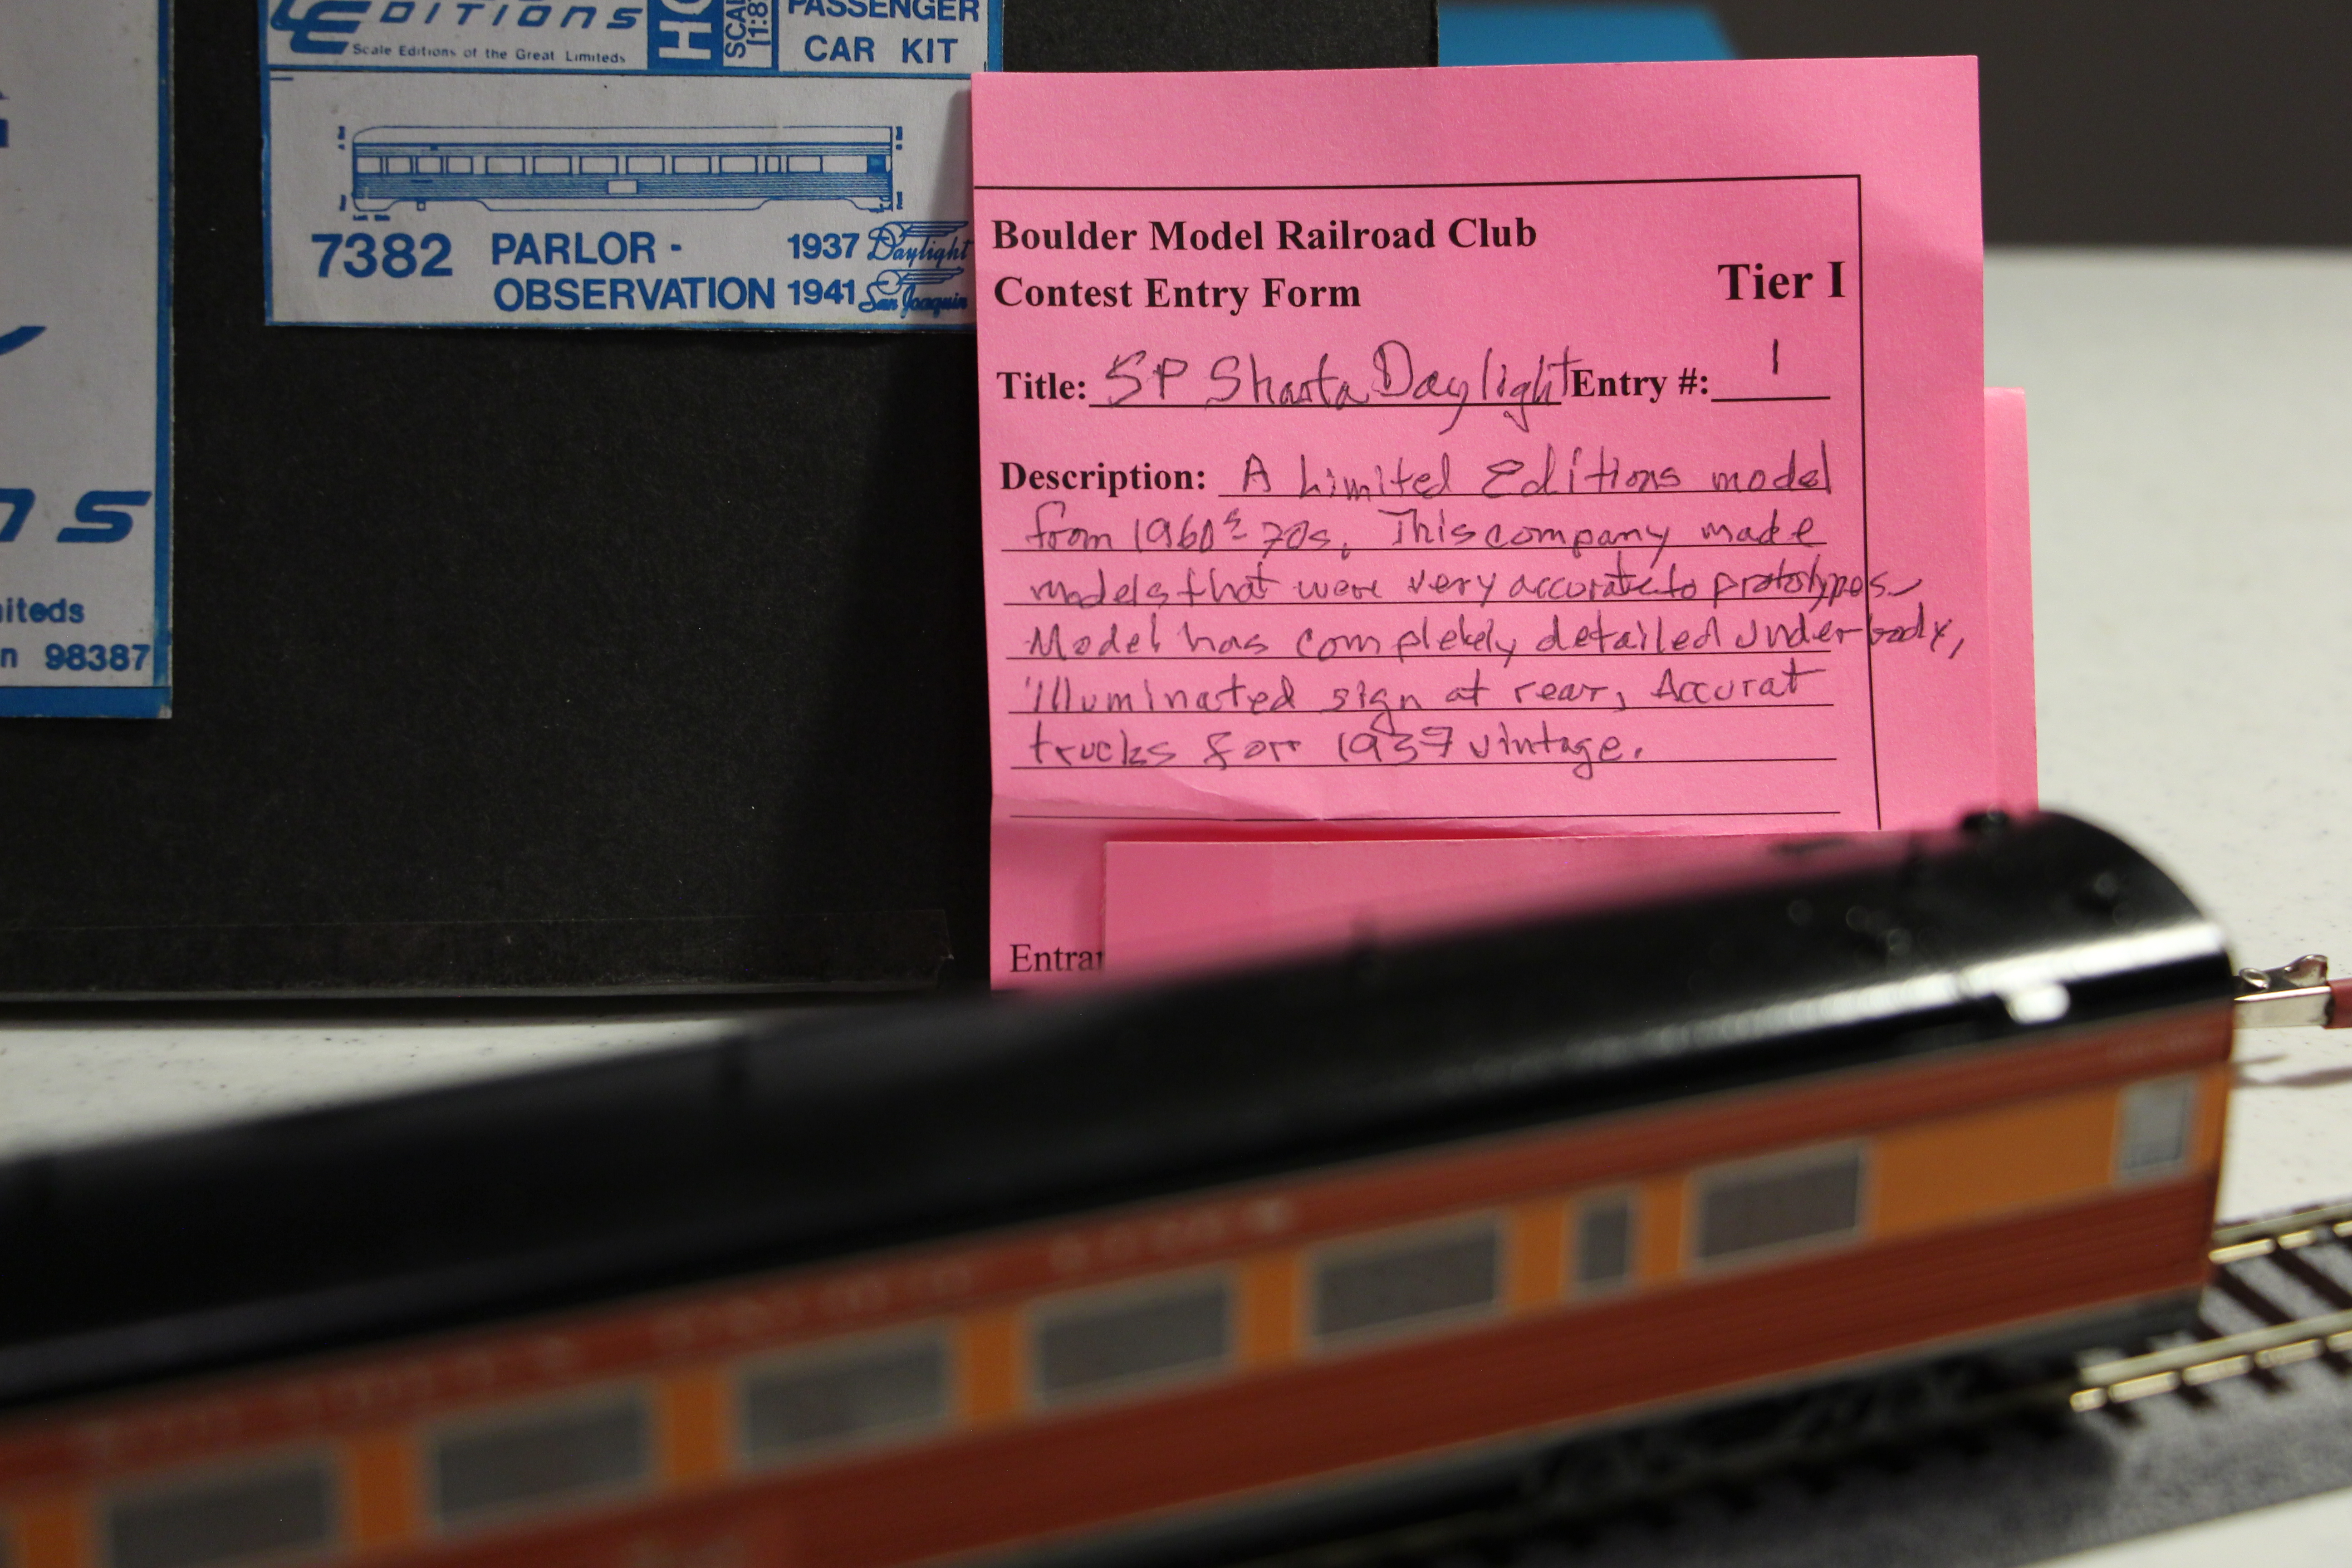 EDITIONS
Scale Editions of the Great Limiteds
HO
SCALE
PASSENGER
CAR KIT
7382 PARLOR - 1937 Daylight
OBSERVATION 1941 San Joaquin
ns
iteds
n 98387
Boulder Model Railroad Club
Contest Entry Form Tier I
Title: SP Shasta Daylight Entry #: 1
Description: A Limited Editions model
from 1960s 70s. This company made
models that were very accurate to prototypes.
Model has completely detailed underbody,
illuminated sign at rear, Accurat
trucks for 1937 vintage.
Entran